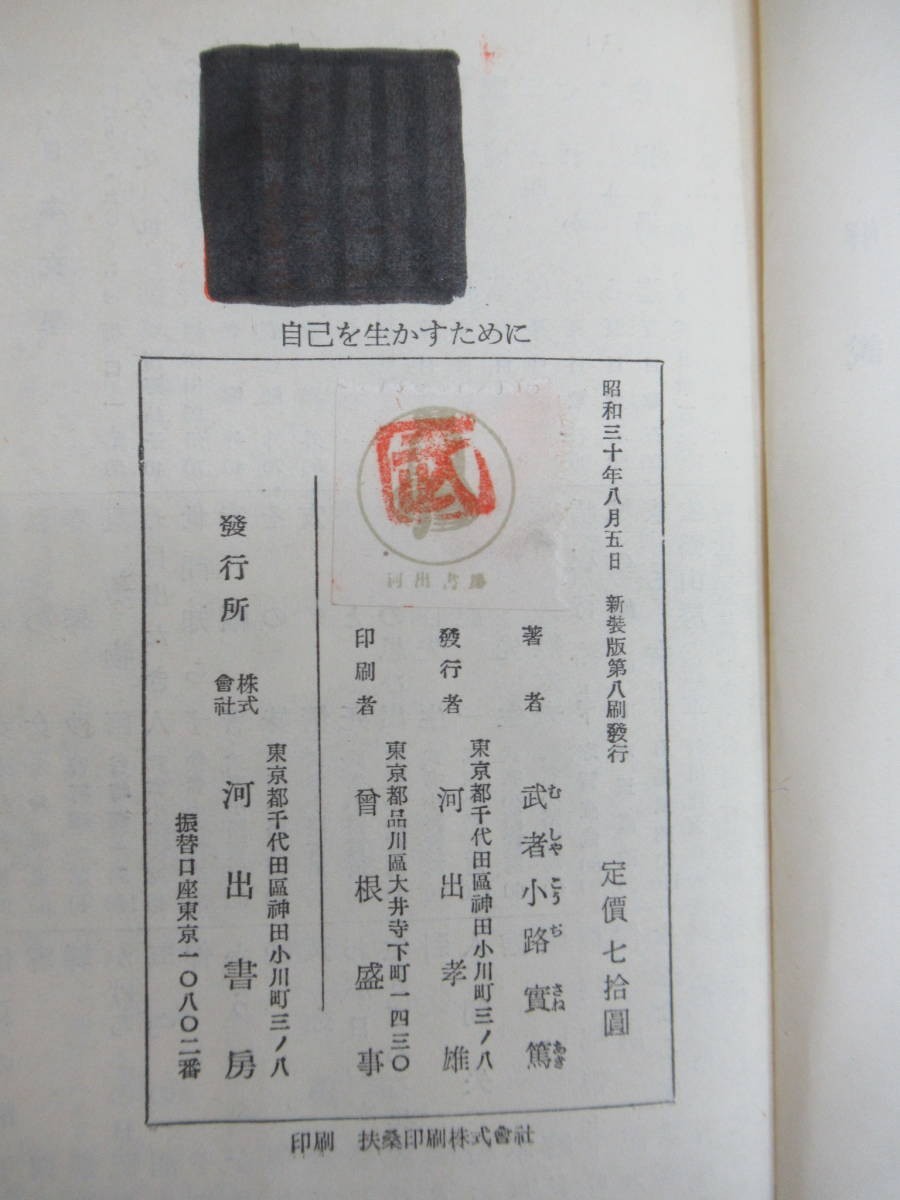 自己を生かすために
昭和三十年八月五日　新裝版第八刷發行
定價七拾圓
武
河出書房
著者　武者小路實篤
むしやこうぢさねあき
發行者　東京都千代田區神田小川町三ノ八
河出孝雄
印刷者　東京都品川區大井寺下町一四三〇
曾根盛事
發行所　東京都千代田區神田小川町三ノ八
株式會社　河出書房
振替口座東京一〇八〇二番
印刷　扶桑印刷株式會社